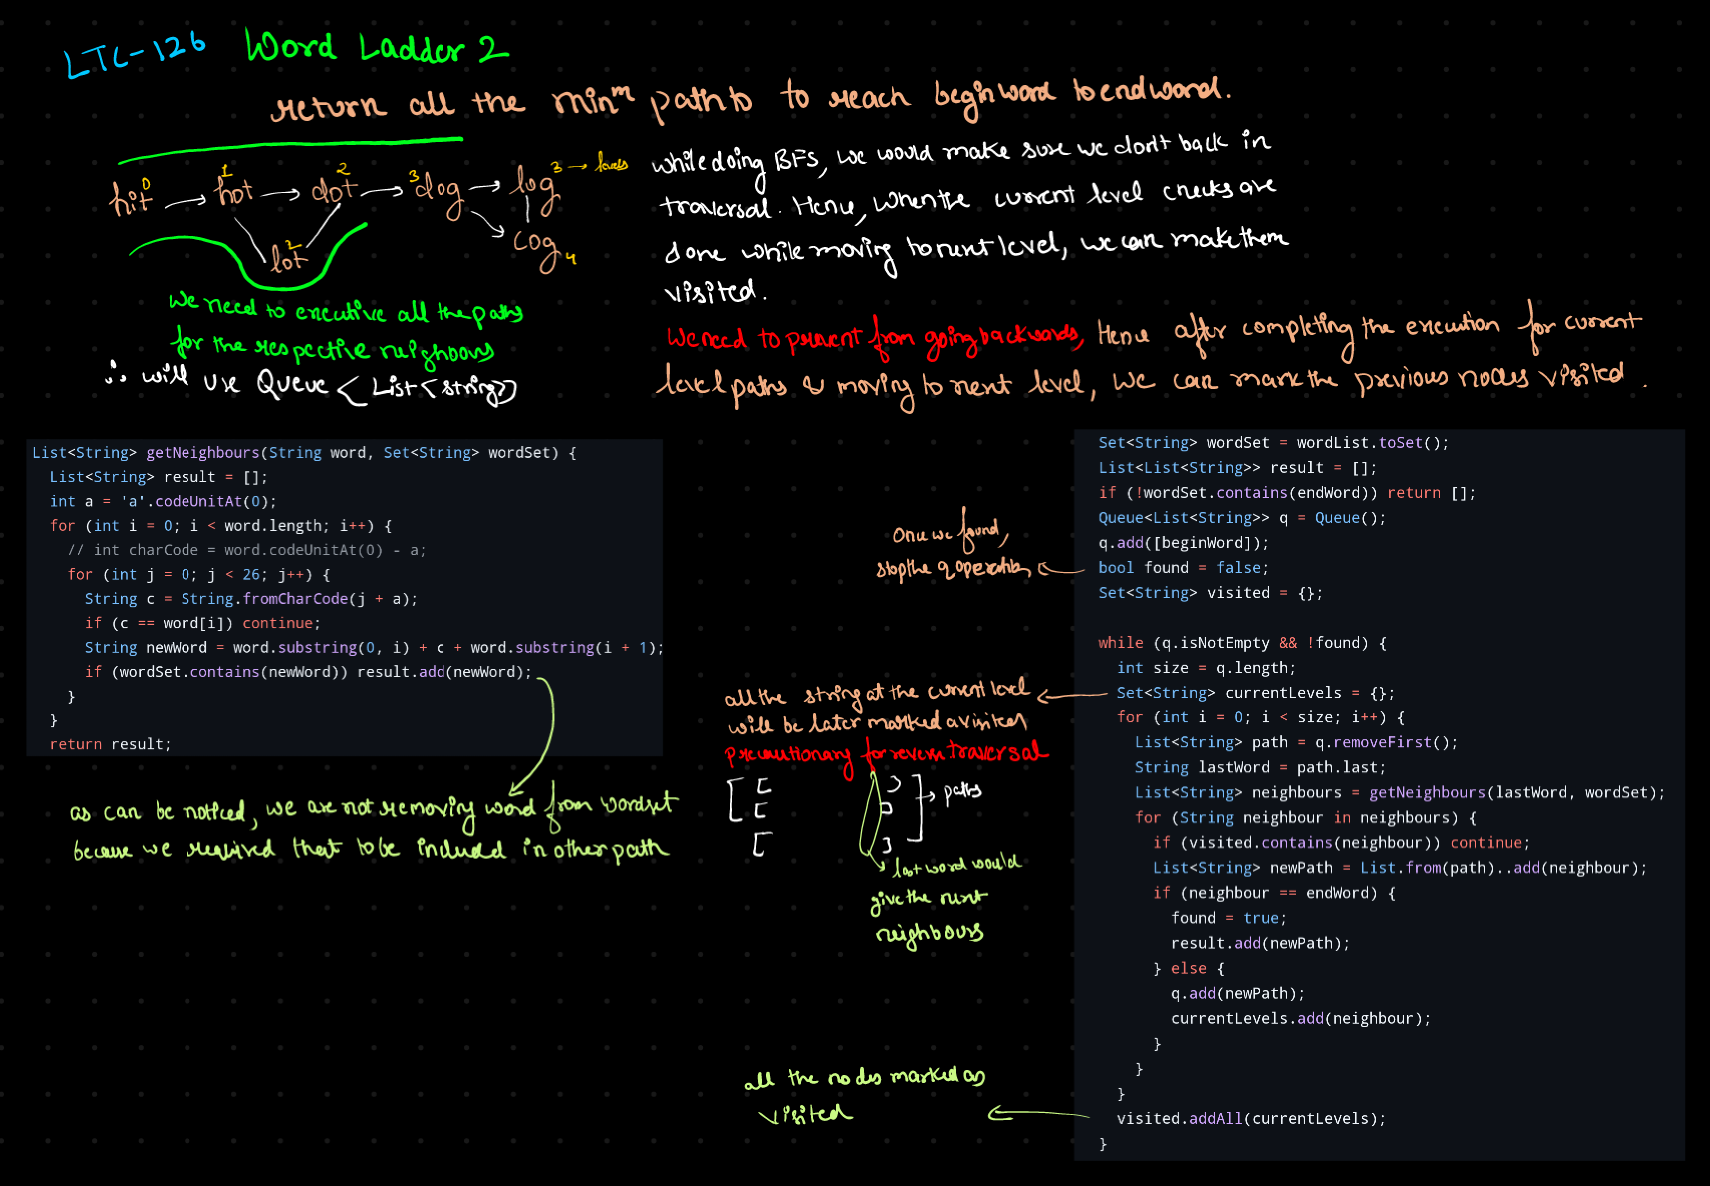 LTC-126 Word Ladder 2
return all the minm path to to reach beginword to endword.
hit 0 → hot 1 → dot 2 → 3 dog → log 3 → levels
lot 2
cog 4
we need to executive all the paths
for the respective neighbours
∴ will use Queue<List<string>>
while doing BFS, we would make sure we don't back in
traversal. Hence, when the current level checks are
done while moving to next level, we can make them
visited.
We need to prevent from going backwards, Hence after completing the execution for current
level paths & moving to next level, we can mark the previous nodes visited.
List<String> getNeighbours(String word, Set<String> wordSet) {
List<String> result = [];
int a = 'a'.codeUnitAt(0);
for (int i = 0; i < word.length; i++) {
// int charCode = word.codeUnitAt(0) - a;
for (int j = 0; j < 26; j++) {
String c = String.fromCharCode(j + a);
if (c == word[i]) continue;
String newWord = word.substring(0, i) + c + word.substring(i + 1);
if (wordSet.contains(newWord)) result.add(newWord);
}
}
return result;
as can be noticed, we are not removing word from wordset
because we required that to be included in other path
One we found,
stop the q operation
all the string at the current level
will be later marked a visited
precautionary for reverse traversal
[ [ ] ] → paths
[ ]
[ ]
last word would
give the next
neighbours
all the nodes marked as
visited
Set<String> wordSet = wordList.toSet();
List<List<String>> result = [];
if (!wordSet.contains(endWord)) return [];
Queue<List<String>> q = Queue();
q.add([beginWord]);
bool found = false;
Set<String> visited = {};
while (q.isNotEmpty && !found) {
int size = q.length;
Set<String> currentLevels = {};
for (int i = 0; i < size; i++) {
List<String> path = q.removeFirst();
String lastWord = path.last;
List<String> neighbours = getNeighbours(lastWord, wordSet);
for (String neighbour in neighbours) {
if (visited.contains(neighbour)) continue;
List<String> newPath = List.from(path)..add(neighbour);
if (neighbour == endWord) {
found = true;
result.add(newPath);
} else {
q.add(newPath);
currentLevels.add(neighbour);
}
}
}
visited.addAll(currentLevels);
}